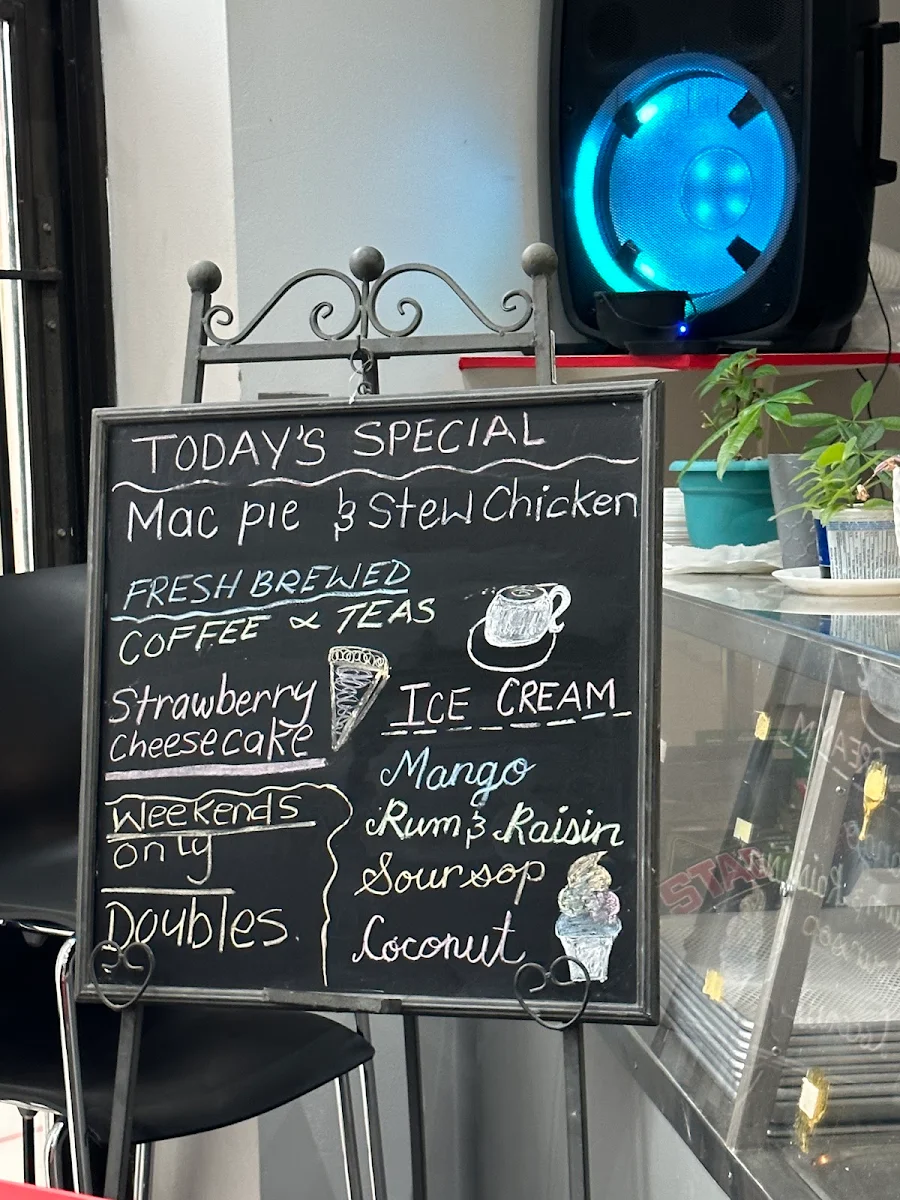 TODAY'S SPECIAL
Mac pie & Stew Chicken
FRESH BREWED
COFFEE & TEAS
Strawberry
Cheesecake
Weekends
only
Doubles.
ICE CREAM
Mango
Rum & Raisin
Soursop
Coconut